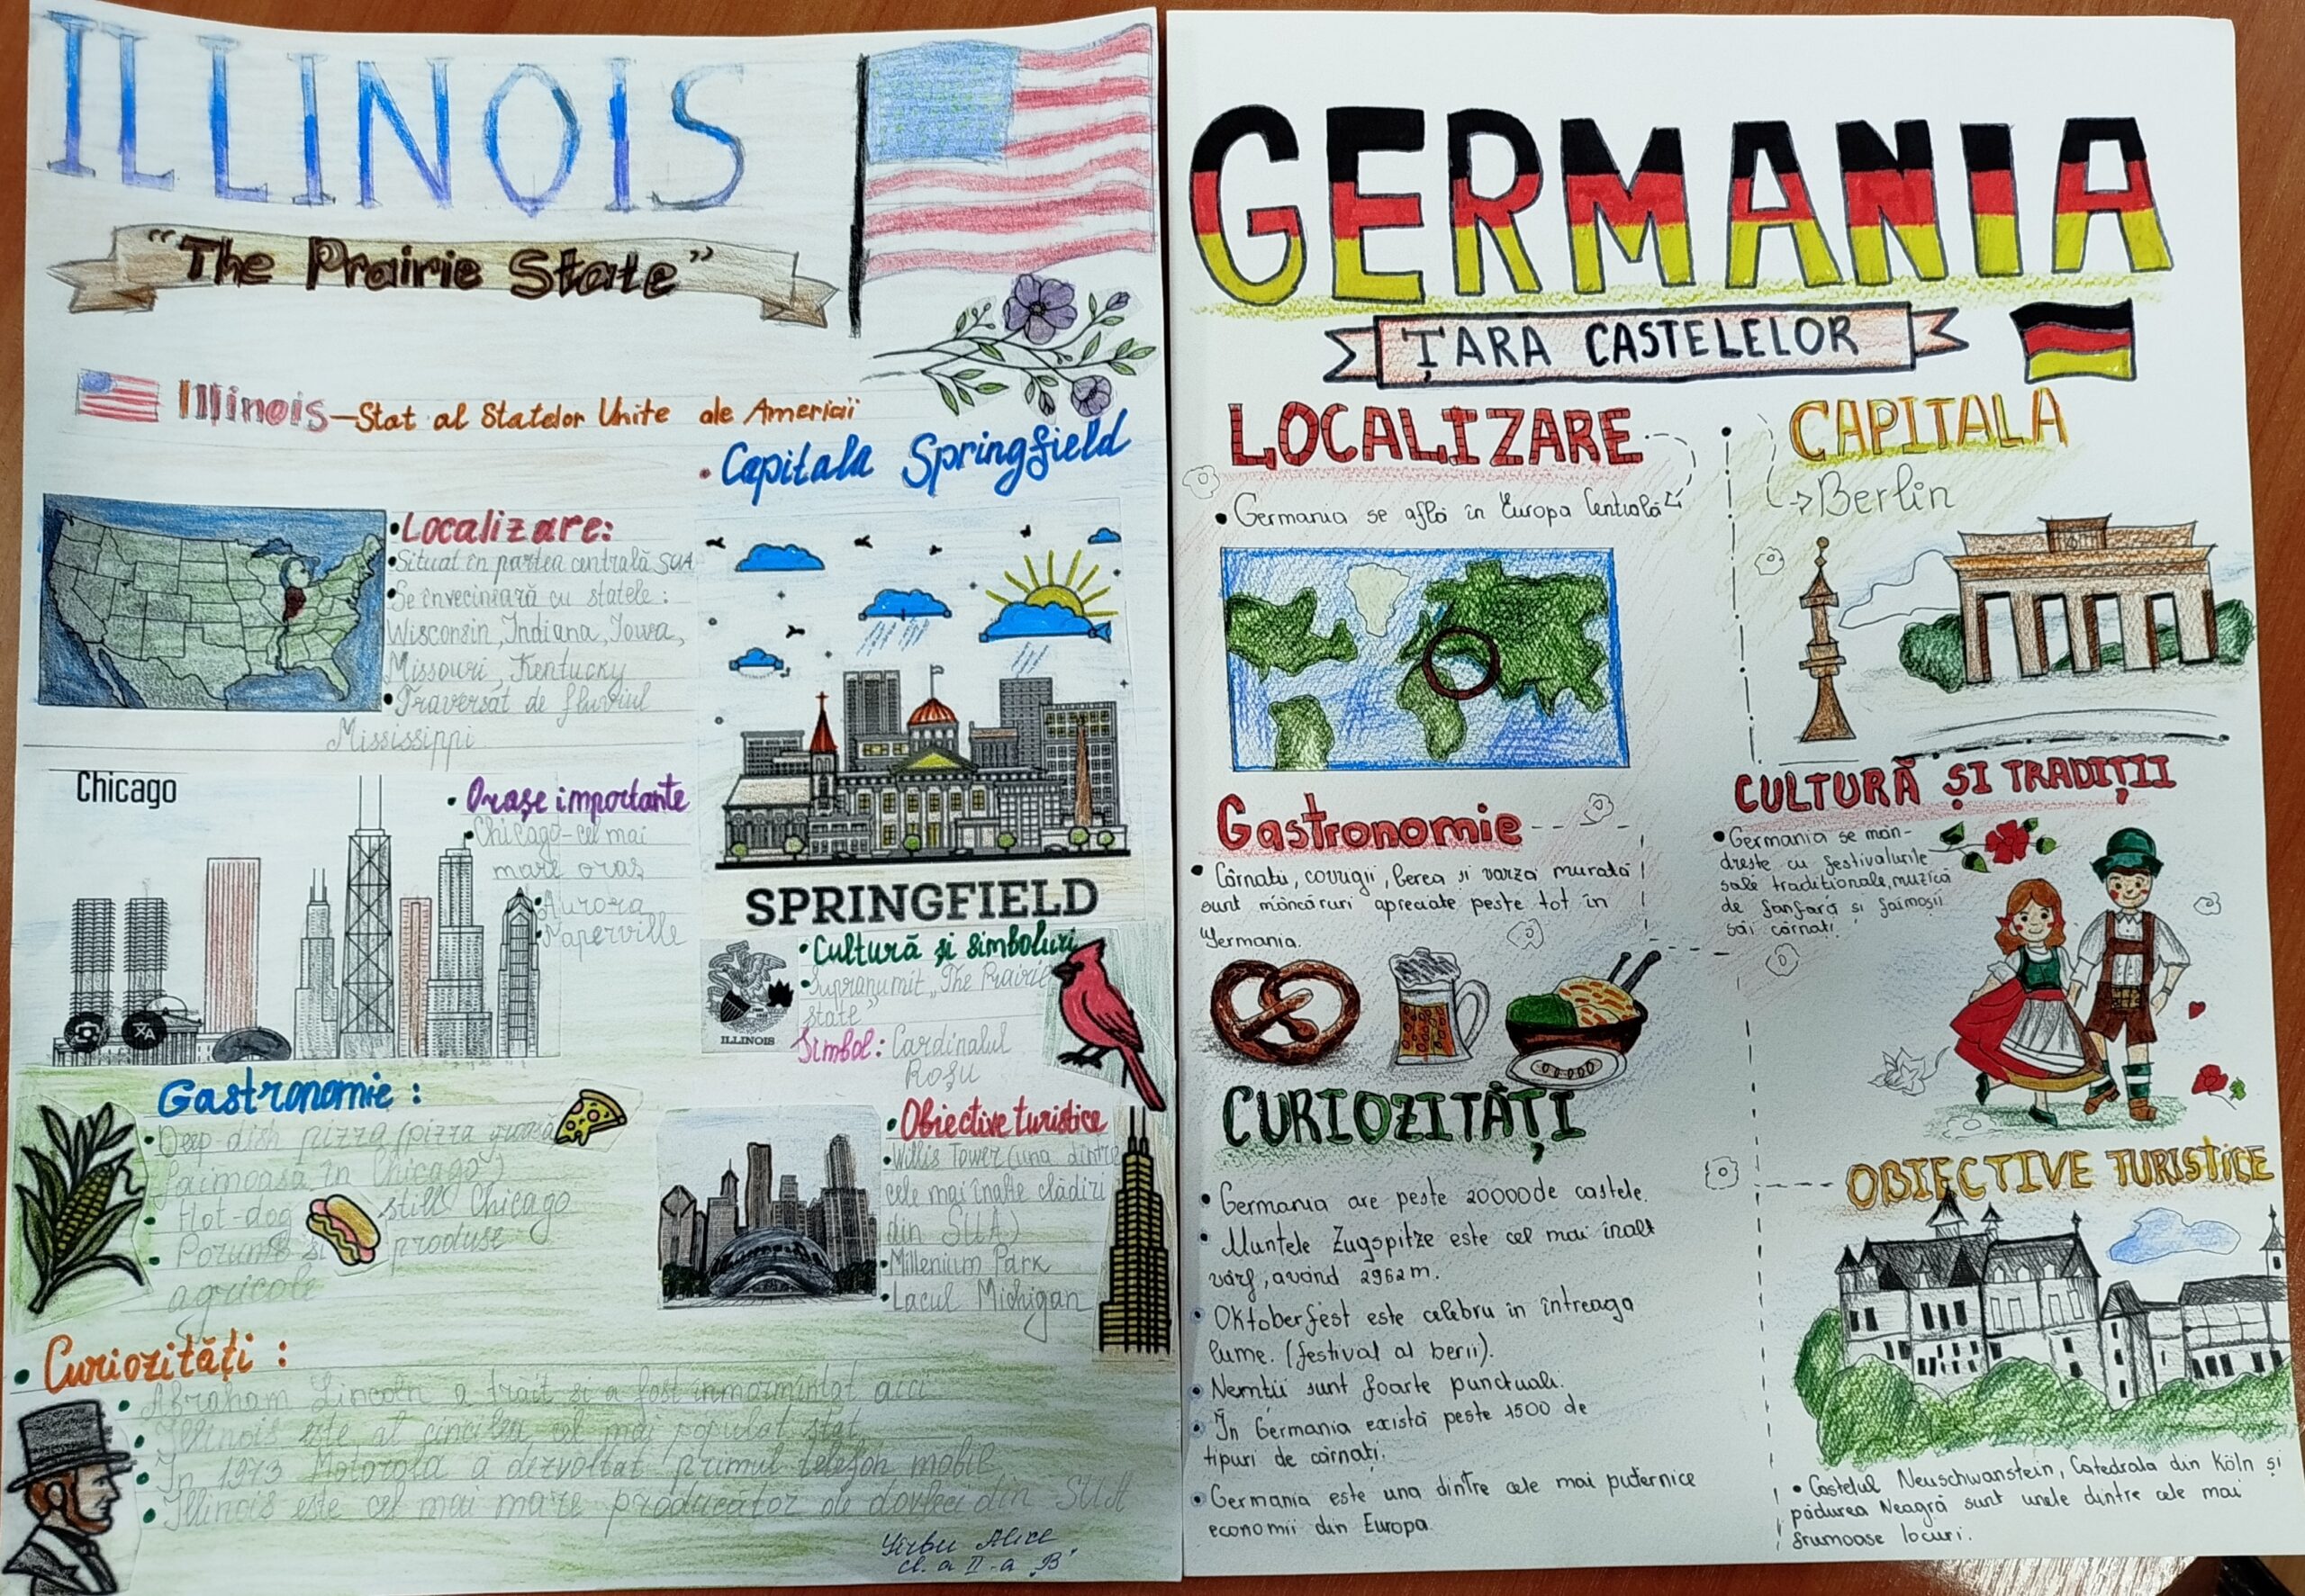 ILLINOIS
"The Prairie State"
Illinois—Stat al Statelor Unite ale Americii
• Capitala Springfield
• Localizare:
• Situat în partea centrală SUA
• Se învecinează cu statele:
Wisconsin, Indiana, Iowa,
Missouri, Kentucky
• Traversat de fluviul
Mississippi
Chicago
• Orașe importante
• Chicago-cel mai
mare oraș
• Aurora
• Naperville
SPRINGFIELD
• Cultură și simboluri
• Supranumit „The Prairie
state"
Simbol: Cardinalul
Roșu
ILLINOIS
Gastronomie:
• Deep-dish pizza (pizza groasă
faimoasă în Chicago)
• Hot-dog still Chicago
• Porumb și produse
agricole
• Obiective turistice
• Willis Tower (una dintre
cele mai înalte clădiri
din SUA)
• Millenium Park
• Lacul Michigan
• Curiozități:
• Abraham Lincoln a trait și a fost inmormintat aici
• Illinois este al cincilea cel mai populat stat.
• În 1973 Motorola a dezvoltat primul telefon mobil
• Illinois este cel mai mare producător de dovleci din SUA
Alice
cl. a II-a „B"
GERMANIA
ȚARA CASTELELOR
LOCALIZARE
• Germania se află în Europa Centrală
CAPITALA
→ Berlin
Gastronomie
• Cârnații, covrigii, berea și varza murată
sunt mâncăruri apreciate peste tot în
Germania.
CULTURĂ ȘI TRADIȚII
• Germania se mân-
drește cu festivalurile
sale tradiționale, muzică
de fanfară și faimoșii
săi cârnați.
CURIOZITĂȚI
• Germania are peste 20000 de castele.
• Muntele Zugspitze este cel mai înalt
vârf, având 2962m.
• Oktoberfest este celebru în întreaga
lume. (festival al berii).
• Nemții sunt foarte punctuali.
• În Germania există peste 1500 de
tipuri de cârnați.
• Germania este una dintre cele mai puternice
economii din Europa
OBIECTIVE TURISTICE
• Castelul Neuschwanstein, Catedrala din Köln și
pădurea Neagră sunt unele dintre cele mai
frumoase locuri.